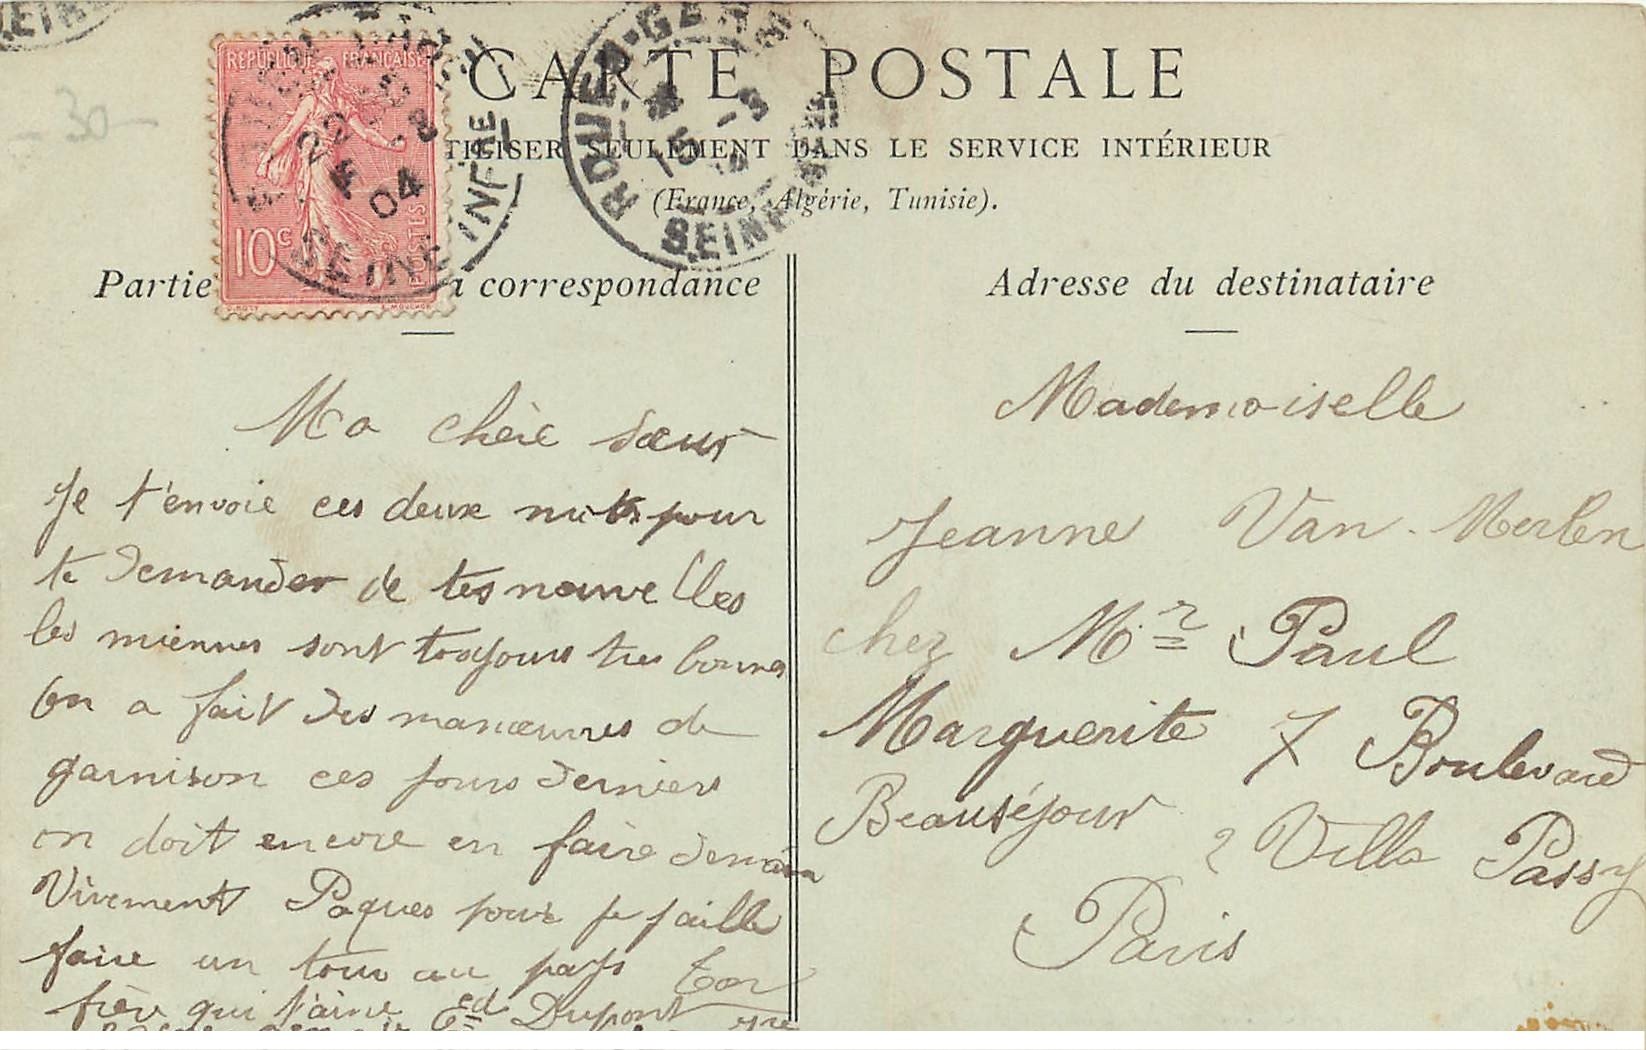 CARTE POSTALE
TILISER SEULEMENT DANS LE SERVICE INTÉRIEUR
(France, Algérie, Tunisie).
RÉPUBLIQUE FRANÇAISE
10c
POSTES
22
04
SEINE INFRE
ROUEN-GARE
SEINE
SEINE
-30-
Partie a correspondance
Ma chère sœur
Je t'envoie ces deux mots pour
te demander de tes nouvelles
les miennes sont toujours tres bonnes
On a fait des manœuvres de
garnison ces jours derniers
on doit encore en faire demain
Vivement Paques pour je jaille
faire un tour au pays Ton
frère qui t'aime Ed Dupont
Adresse du destinataire
Mademoiselle
Jeanne Van-Merlen
chez Mr Paul
Marguerite 7 Boulevard
Beauséjour 2 Villa Passy
Paris